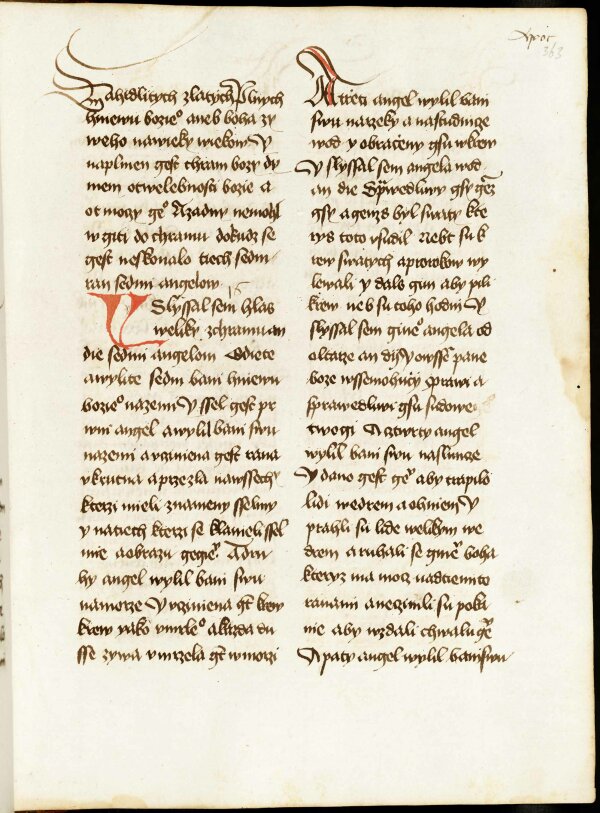 Apoc
363
dm ahrdlitych zlatych plnych
hniewu bozieº aneb boha zy
weho nawieky wiekow Y
naplnien gest chram bozy dy
mem otwelebnosti bozie a
ot moczy geº Azadny nemohl
wgiti dochramu dokudz se
gest neskonalo tiech sedm
ran sedmi angelow
Y Slyssal sem hlas
weliky zchramu an
die sedmi angelom Gdiete
awylite sedm bani hniewu
bozieº nazemi Y ssel gest pr
wni angel awylil bani swu
nazemi avcziniena gest rana
vkrutna aprzezla nawssechy
kterzi mieli znameny sselmy
y natiech kterzi se klanieli ssel
mie aobrazu gegie Adru
hy angel wylil bani swu
namorze Y vcziniena gt krew
krew yako vmrleº akazda du
sse zywa vmrzela gt wmorzi
Atrzeti angel wylil bani
swu narzeky a nastudnicze
wod y obraczeny gsu wkrew
Y slyssal sem angela wod
an die Sprwedliwy gsy genz
gsy agenzs byl swaty kte
rys toto vsudil Nebt su k
rew swatych aprorokow wy
lewali y dals gim aby pili
krew neb su toho hodni Y
slyssal sem gineº angela od
oltarze an die Y owsse pane
boze wssemohuczy prawi a
sprawedliwi gsu sudowe
twogi A cztwrty angel
wylil bani swu naslunze
Y dano gest ge aby trapilo
lidi wedrem aohniem Y
prahli su lide welikym we
drem aruhali se gmen boha
kteryz ma mocz nadtiemito
ranami aneczinili su poka
nie aby wzdali chwalu ge
Apaty angel wylil bani swu